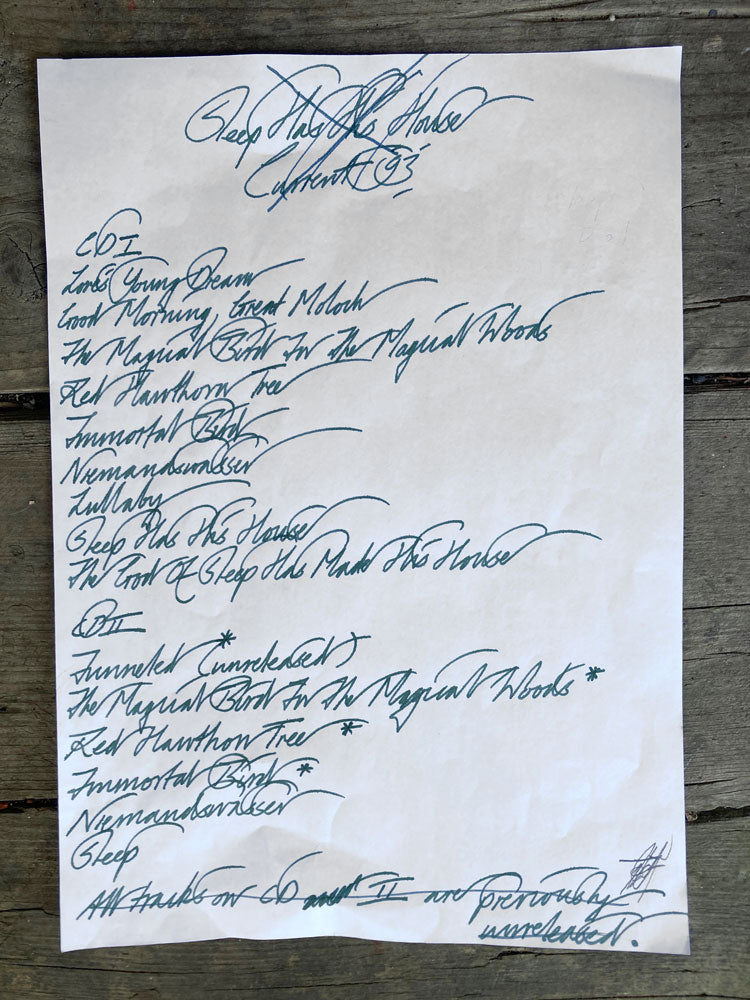 Sleep Has This House
Current 93
CD I
Love's Young Dream
Good Morning, Great Moloch
The Magical Bird In The Magical Woods
Red Hawthorn Tree
Immortal Bird
Niemandswasser
Lullaby
Sleep Has This House
The God Of Sleep Has Made This House
CD II
Funneled * (unreleased)
The Magical Bird In The Magical Woods *
Red Hawthorn Tree *
Immortal Bird *
Niemandswasser
Sleep
All tracks on CD II are previously
unreleased.